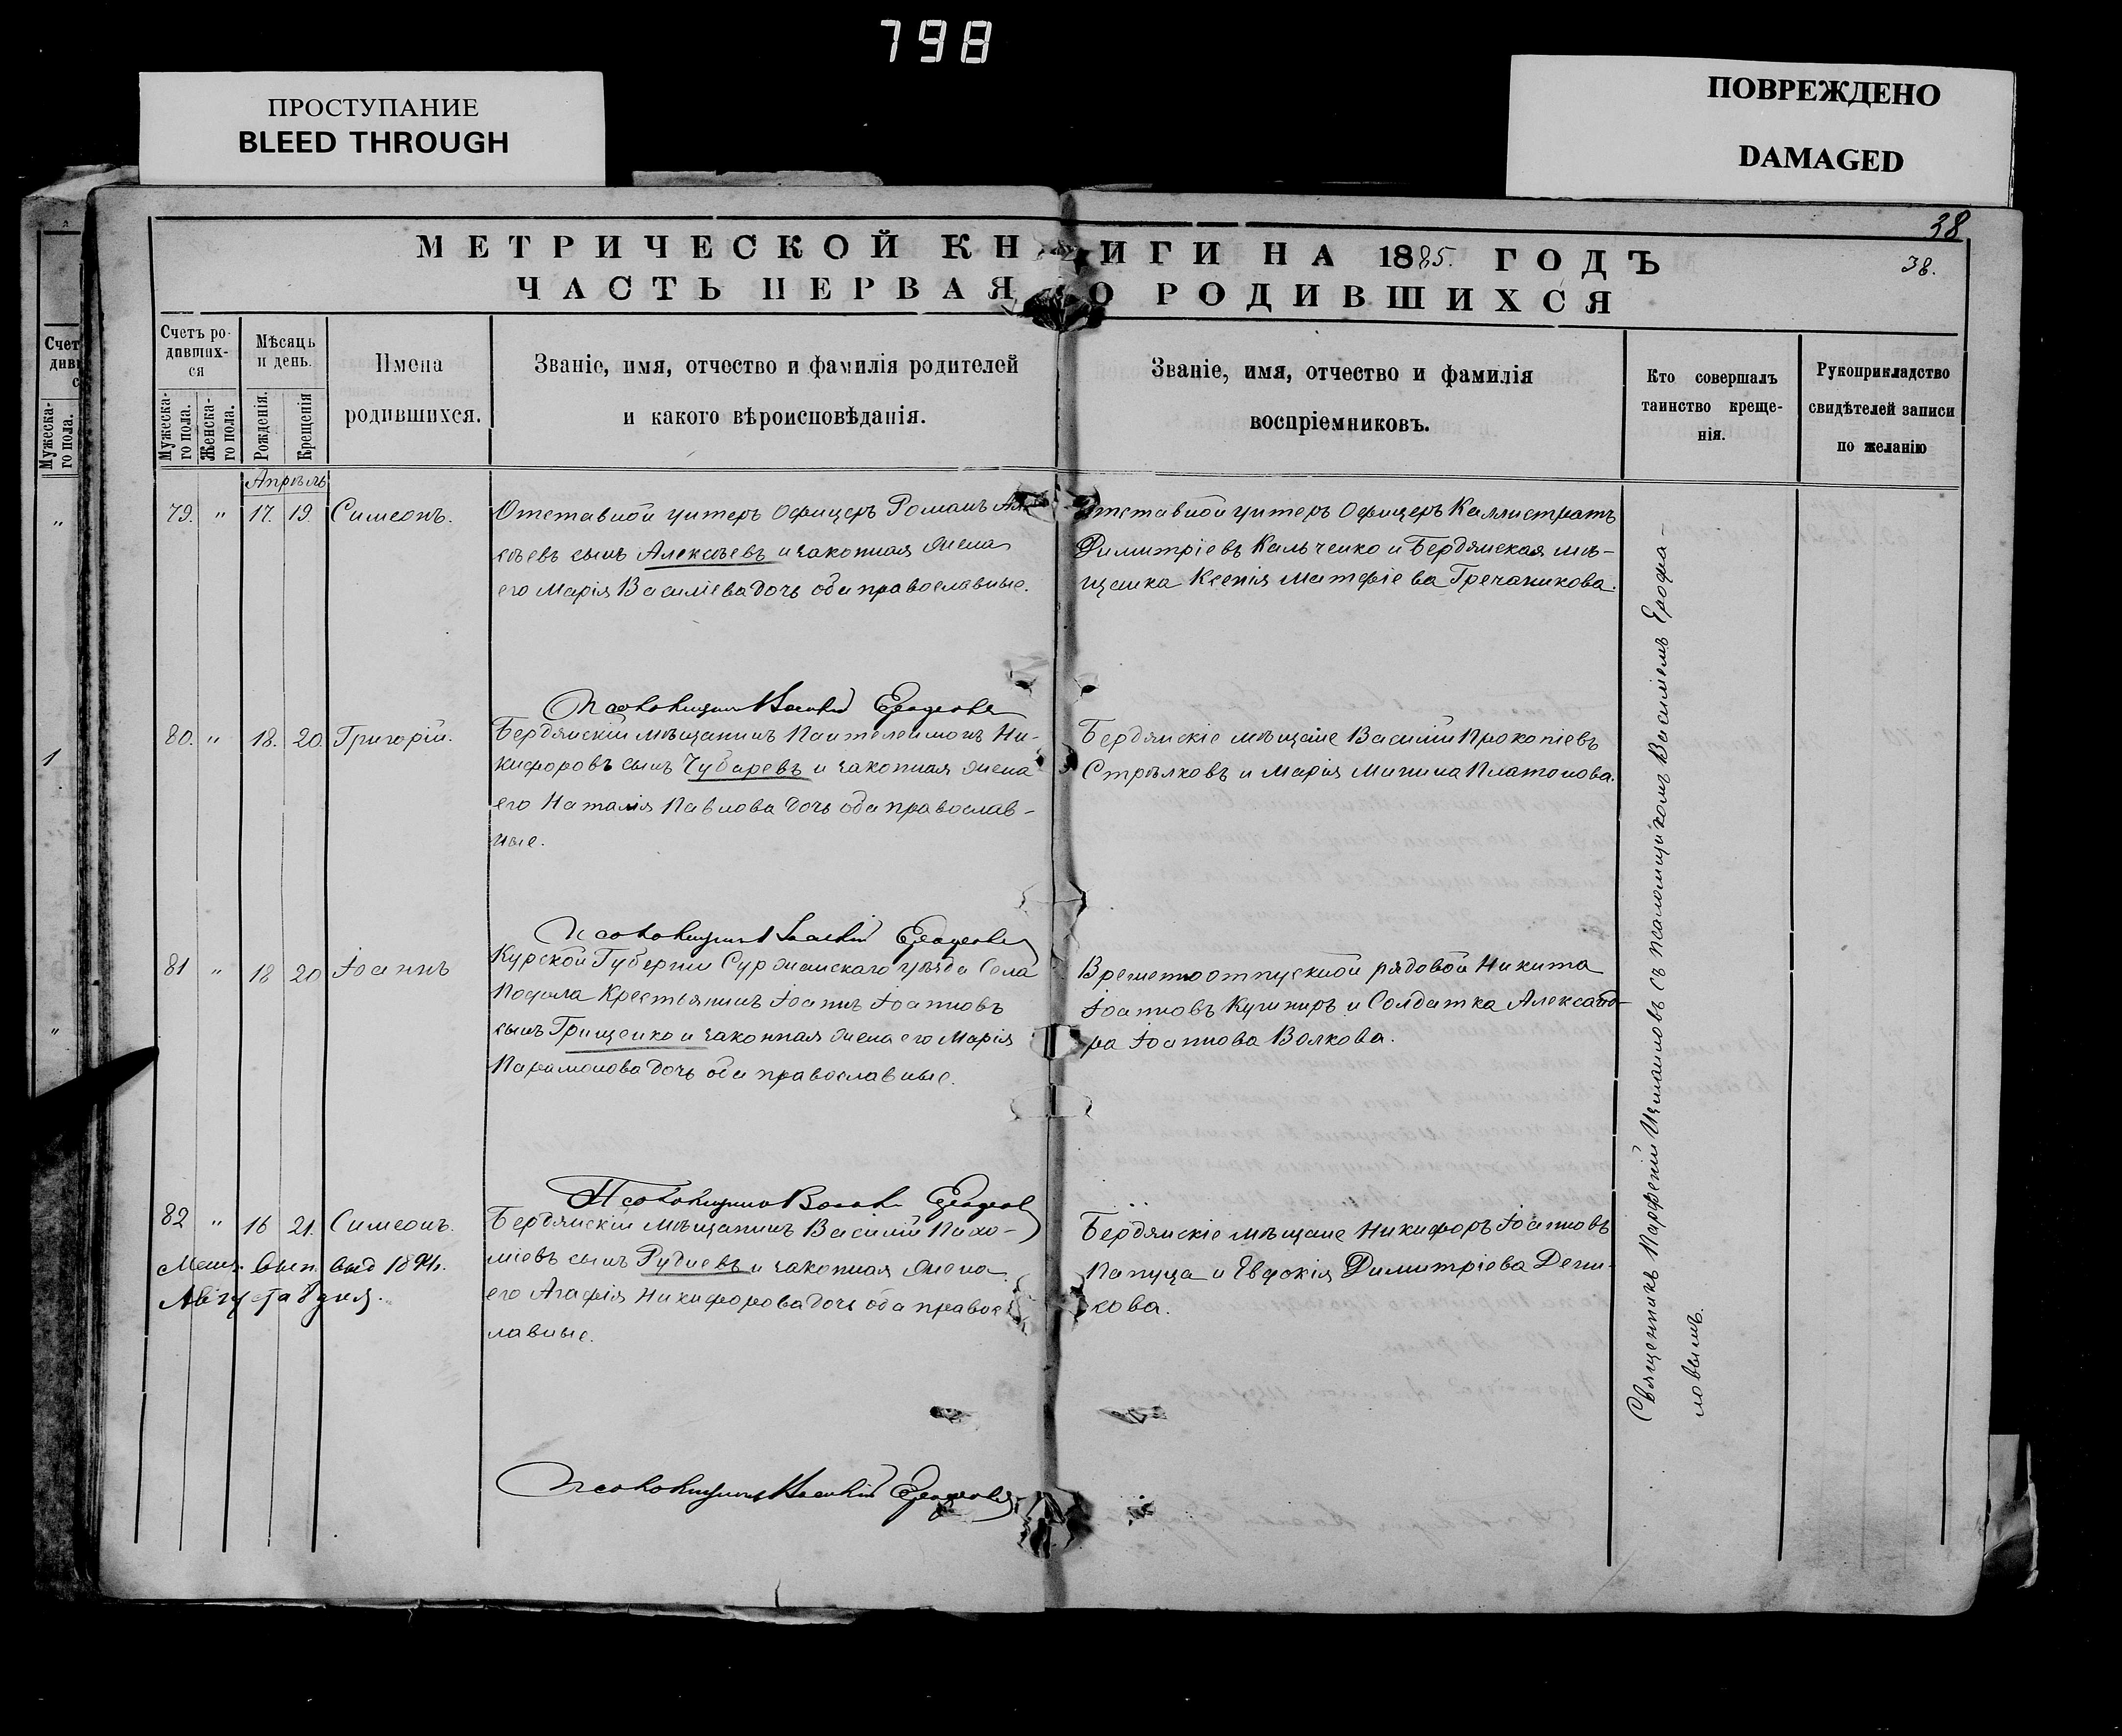 798
ПРОСТУПАНИЕ
BLEED THROUGH
ПОВРЕЖДЕНО
DAMAGED
38
МЕТРИЧЕСКОЙ КНИГИ НА 1885. ГОДЪ
38.
ЧАСТЬ ПЕРВАЯ О РОДИВШИХСЯ
Счетъ ро-
дившихся
Мужеска-
го пола.
Женска-
го пола.
Мѣсяць
и день.
Рожденія.
Крещенія
Имена
родившихся.
Званіе, имя, отчество и фамилія родителей
и какого вѣроисповѣданія.
Званіе, имя, отчество и фамилія
воспріемниковъ.
Кто совершалъ
таинство креще-
нія.
Рукоприкладство
свидѣтелей записи
по желанію
Апрѣль
79. " 17. 19. Симеонъ.
Отставной унтеръ Офицеръ Романъ Але
сѣевъ сынъ Алексѣевъ и законная жена
его Марія Василіева дочь оба православные.
Отставной унтеръ Офицеръ Каллистратъ
Димитріевъ Кальченко и Бердянская мѣ-
щанка Ксенія Матфіева Гречаникова.
Псаломщикъ Василій
80. " 18. 20. Григорій.
Бердянскій мѣщанинъ Пантелеимонъ Ни-
кифоровъ сынъ Чубаревъ и законная жена
его Наталія Павлова дочь оба православ-
ные.
Бердянскіе мѣщане Василій Прокопіевъ
Стрѣлковъ и Марія Минина Платонова.
Псаломщикъ Василій
81 " 18 20 Іоаннъ
Курской Губерніи Суржанскаго уѣзда Села
Крестьянинъ Іоаннъ Іоанновъ
сынъ Грищенко и законная жена его Марія
Парамонова дочь оба православные.
Временноотпускной рядовой Никита
Іоанновъ Кушниръ и Солдатка Александ-
ра Іоаннова Волкова.
Псаломщикъ Василій
82 " 16 21. Симеонъ.
Метр. вып. выд 1894.
Августа 8 дня.
Бердянскій мѣщанинъ Василій Пахо-
міевъ сынъ Рудневъ и законная жена
его Агафія Никифорова дочь оба правос
лавные.
Бердянскіе мѣщане Никифоръ Іоанновъ
Папуца и Евдокія Димитріева Дени-
кова.
Псаломщикъ Василій
Священникъ Парфеній Измаиловъ съ псаломщикомъ Василіемъ Ерофа-
ловымъ.
Счет
диви
с
Мужеска-
го пола.
"
1
"